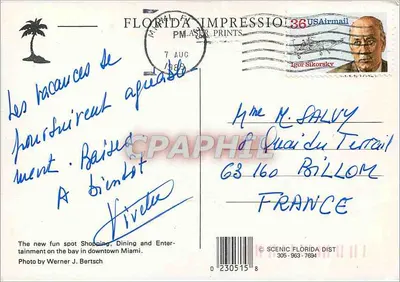 FLORIDA IMPRESSIO
LASER PRINTS
PM
7 AUG
36 USAirmail
Igor Sikorsky
Les vacances se
poursuivent agréable
ment. Baisers
A bientôt
Mme M. SALVY
8 Quai du Terrail
63160 BILLOM
FRANCE
CPAPHIL
The new fun spot Shopping, Dining and Enter-
tainment on the bay in downtown Miami.
Photo by Werner J. Bertsch
0 230515 8
© SCENIC FLORIDA DIST
305-963-7694